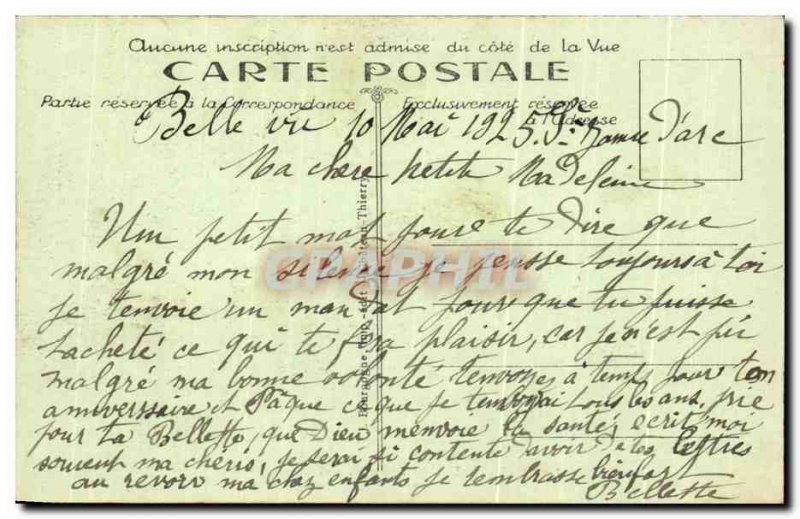 Aucune inscription n'est admise du côté de la Vue
CARTE POSTALE
Partie réservée à la Correspondance
Exclusivement réservée
à l'Adresse
Belle vu 10 Mai 1925 Ste Janne d'arc
Ma chère petite Madeleine
Um petit mot pour te dire que
malgré mon silence je pensse toujours à toi
je t'envoie un mandat pour que tu puisse
t'acheté ce qui te fera plaisir, car je n'est pu
malgré ma bonne volonté t'envoyes à temps pour ton
aniverssaire et Pâque ce que je t'envoyai tous les ans, prie
pour ta Bellette, que Dieu m'envoie la santé, ecrit moi
souvent ma chéris, je serai si contente d'avoir de tes lettres
au revoir ma enfants je t'embrasse bien fort
Bellette
CPAPHIL